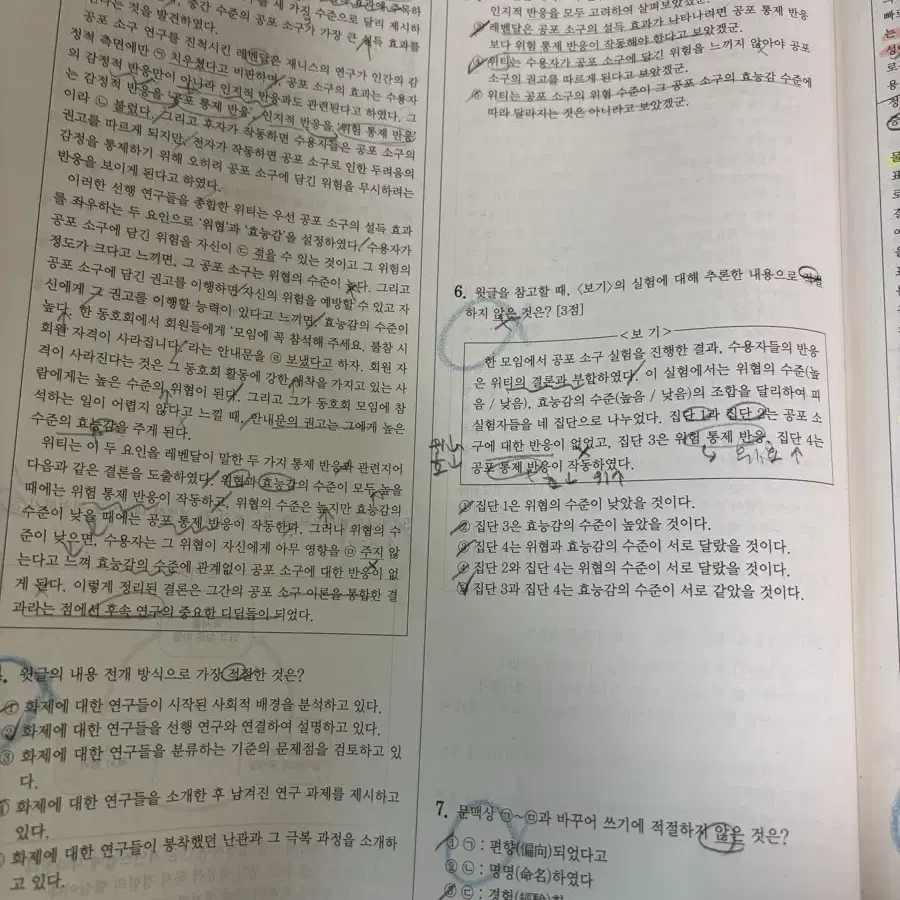 중간 수준의 공포 소구가 가장 큰 설득 효과를
다는 것을 발견하였다.
공포 소구 연구를 진척시킨 레벤달은 재니스의 연구가 인간의 감
정적 측면에만 ㉠ 치우쳤다고 비판하며, 공포 소구의 효과는 수용자
의 감정적 반응만이 아니라 인지적 반응과도 관련된다고 하였다. 그
는 감정적 반응을 '공포 통제 반응', 인지적 반응을 '위험 통제 반응'
이라 ㉡ 불렀다. 그리고 후자가 작동하면 수용자들은 공포 소구의
권고를 따르게 되지만, 전자가 작동하면 공포 소구로 인한 두려움의
감정을 통제하기 위해 오히려 공포 소구에 담긴 위험을 무시하려는
반응을 보이게 된다고 하였다.
이러한 선행 연구들을 종합한 위티는 우선 공포 소구의 설득 효과
를 좌우하는 두 요인으로 '위협'과 '효능감'을 설정하였다. 수용자가
공포 소구에 담긴 위험을 자신이 ㉢ 겪을 수 있는 것이고 그 위험의
정도가 크다고 느끼면, 그 공포 소구는 위협의 수준이 높다. 그리고
공포 소구에 담긴 권고를 이행하면 자신의 위험을 예방할 수 있고 자
신에게 그 권고를 이행할 능력이 있다고 느끼면, 효능감의 수준이
높다. 한 동호회에서 회원들에게 '모임에 꼭 참석해 주세요. 불참 시
회원 자격이 사라집니다.'라는 안내문을 ㉣ 보냈다고 하자. 회원 자
격이 사라진다는 것은 그 동호회 활동에 강한 애착을 가지고 있는 사
람에게는 높은 수준의 위협이 된다. 그리고 그가 동호회 모임에 참
석하는 일이 어렵지 않다고 느낄 때, 안내문의 권고는 그에게 높은
수준의 효능감을 주게 된다.
위티는 이 두 요인을 레벤달이 말한 두 가지 통제 반응과 관련지어
다음과 같은 결론을 도출하였다. 위협과 효능감의 수준이 모두 높을
때에는 위험 통제 반응이 작동하고, 위협의 수준은 높지만 효능감의
수준이 낮을 때에는 공포 통제 반응이 작동한다. 그러나 위협의 수
준이 낮으면, 수용자는 그 위협이 자신에게 아무 영향을 ㉤ 주지 않
는다고 느껴 효능감의 수준에 관계없이 공포 소구에 대한 반응이 없
게 된다. 이렇게 정리된 결론은 그간의 공포 소구 이론을 통합한 결
과라는 점에서 후속 연구의 중요한 디딤돌이 되었다.
윗글의 내용 전개 방식으로 가장 적절한 것은?
① 화제에 대한 연구들이 시작된 사회적 배경을 분석하고 있다.
② 화제에 대한 연구들을 선행 연구와 연결하여 설명하고 있다.
③ 화제에 대한 연구들을 분류하는 기준의 문제점을 검토하고 있
다.
화제에 대한 연구들을 소개한 후 남겨진 연구 과제를 제시하고
있다.
화제에 대한 연구들이 봉착했던 난관과 그 극복 과정을 소개하
고 있다.
인지적 반응을 모두 고려하여 살펴보았겠군.
③ 레벤달은 공포 소구의 설득 효과가 나타나려면 공포 통제 반응
보다 위험 통제 반응이 작동해야 한다고 보았겠군.
④ 위티는 수용자가 공포 소구에 담긴 위험을 느끼지 않아야 공포
소구의 권고를 따르게 된다고 보았겠군.
⑤ 위티는 공포 소구의 위협 수준이 그 공포 소구의 효능감 수준에
따라 달라지는 것은 아니라고 보았겠군.
6. 윗글을 참고할 때, <보기>의 실험에 대해 추론한 내용으로 적절
하지 않은 것은? [3점]
<보 기>
한 모임에서 공포 소구 실험을 진행한 결과, 수용자들의 반응
은 위티의 결론과 부합하였다. 이 실험에서는 위협의 수준(높
음 / 낮음), 효능감의 수준(높음 / 낮음)의 조합을 달리하여 피
실험자들을 네 집단으로 나누었다. 집단 1과 집단 2는 공포 소
구에 대한 반응이 없었고, 집단 3은 위험 통제 반응, 집단 4는
공포 통제 반응이 작동하였다.
① 집단 1은 위협의 수준이 낮았을 것이다.
② 집단 3은 효능감의 수준이 높았을 것이다.
③ 집단 4는 위협과 효능감의 수준이 서로 달랐을 것이다.
④ 집단 2와 집단 4는 위협의 수준이 서로 달랐을 것이다.
⑤ 집단 3과 집단 4는 효능감의 수준이 서로 같았을 것이다.
7. 문맥상 ㉠~㉤과 바꾸어 쓰기에 적절하지 않은 것은?
① ㉠ : 편향(偏向)되었다고
② ㉡ : 명명(命名)하였다
③ ㉢ : 경험(經驗)할